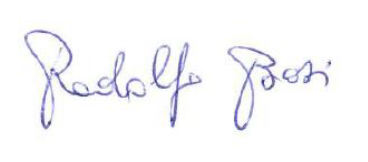 Rodolfo Bosi